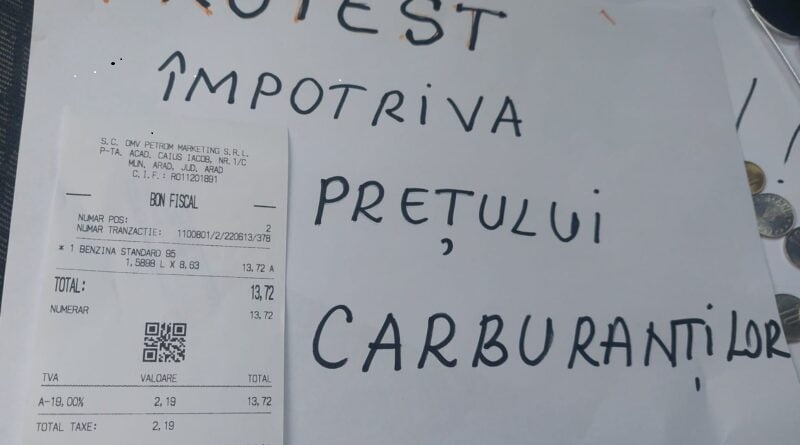 PROTEST
ÎMPOTRiVA
PREȚULUi
CARBURANȚiLOR
S.C. OMV PETROM MARKETING S.R.L.
P-TA. ACAD. CAIUS IACOB, NR.1/C
MUN. ARAD, JUD. ARAD
C.I.F.: RO11201891
BON FISCAL
NUMAR POS: 2
NUMAR TRANZACTIE: 1100801/2/220613/378
* 1 BENZINA STANDARD 95
1,5898 L X 8,63 13,72 A
TOTAL: 13,72
NUMERAR 13,72
TVA VALOARE TOTAL
A-19,00% 2,19 13,72
TOTAL TAXE: 2,19